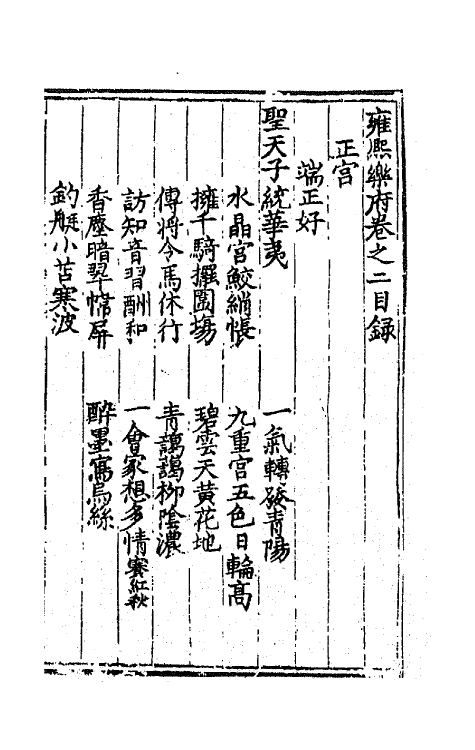 雍熙樂府卷之二目録
正宫
端正好
聖天子統華夷　一氣轉發青陽
水晶宫鮫綃帳　九重宫五色日輪高
擁千騎擺圍塲　碧雲天黄花地
傳將令馬休行　青藹藹柳陰濃
訪知音習酬和　一會家想多情賽紅秋
香塵暗翠幃屏　醉墨寫烏絲
釣艇小苫寒波